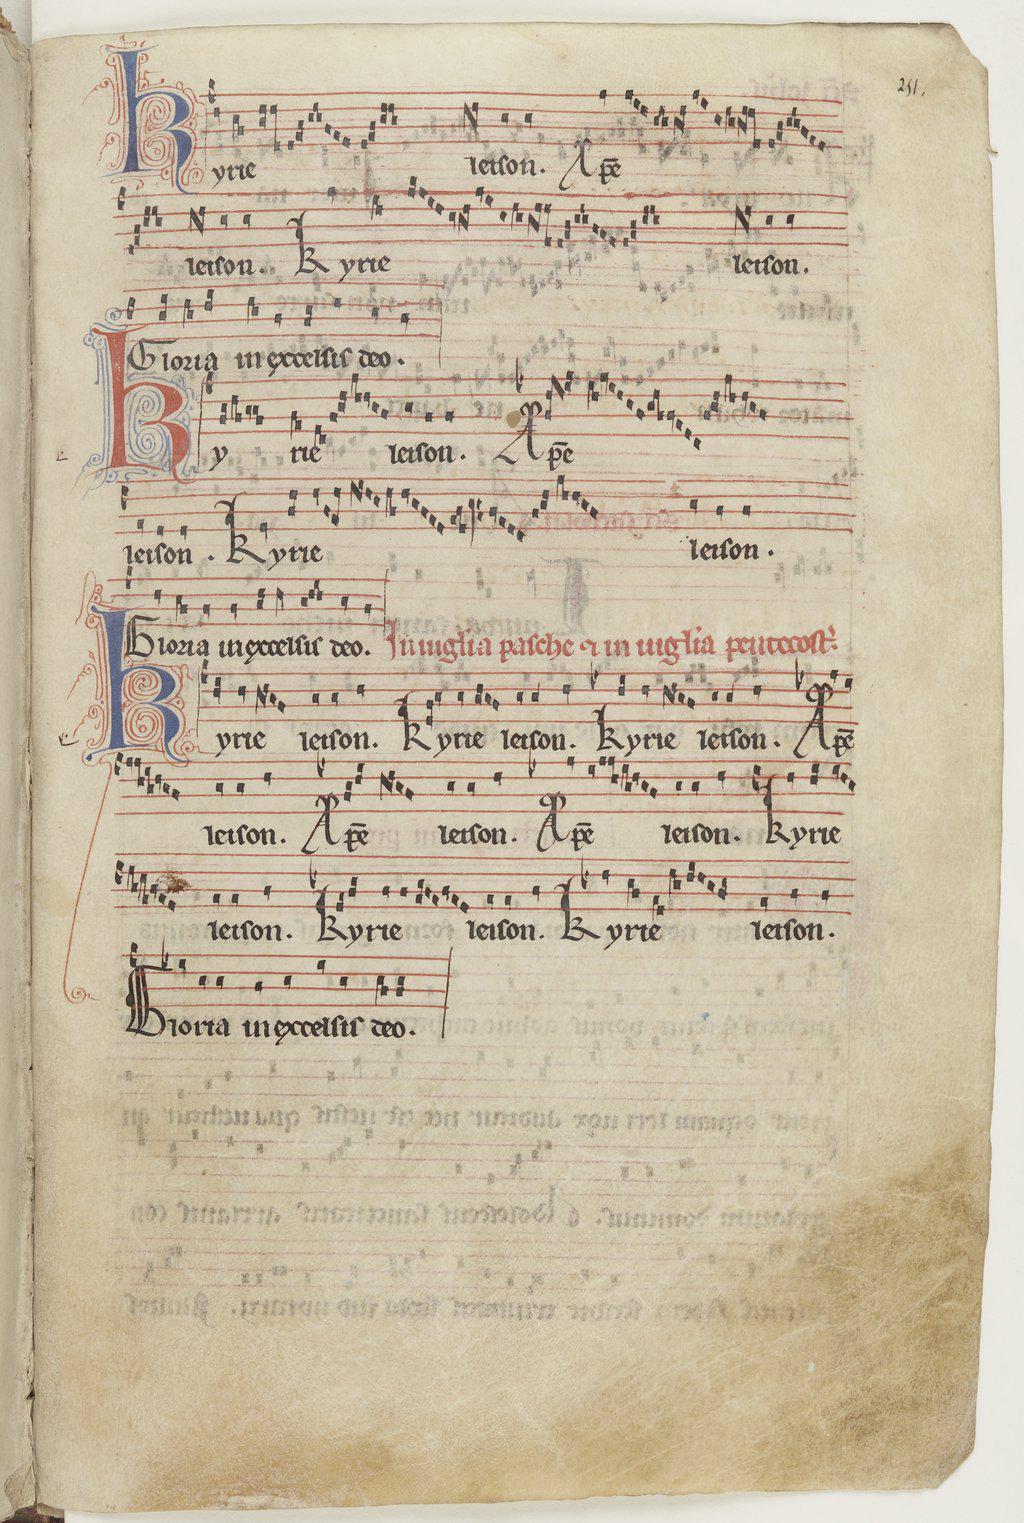 251.
Kyrie leison. Xp̄e
leison. Kyrie leison.
Gloria in excelsis deo.
Ky rie leison. Xp̄e
leison. Kyrie leison.
Gloria in excelsis deo. In uigľia pasche ⁊ in uigľia pentecost̉.
Kyrie leison. Kyrie leison. Kyrie leison. Xp̄e
leison. Xp̄e leison. Xp̄e leison. Kyrie
leison. Kyrie leison. Kyrie leison.
Gloria in excelsis deo.